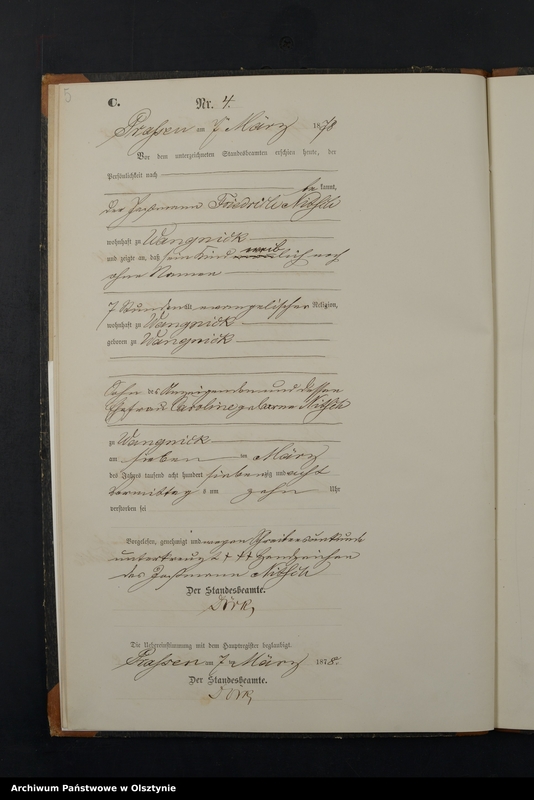 5
C.
Nr. 4.
Prassen am 7 März 1878.
Vor dem unterzeichneten Standesbeamten erschien heute, der
Persönlichkeit nach
be kannt,
der Friedrich Nitsch
wohnhaft zu Wangnick
und zeigte an, daß sein Kind weiblich noch
ohne Namen
7 Stunden alt, evangelischer Religion,
wohnhaft zu Wangnick
geboren zu Wangnick
Sohn des Anzeigenden und dessen
Ehefrau Caroline geborne Nitsch
zu Wangnick
am sieben ten März
des Jahres tausend acht hundert siebenzig und acht
Vormittag s um zehn Uhr
verstorben sei
Vorgelesen, genehmigt und wegen Schreibensunkunde
unterkreuzt + ++ Handzeichen
des Nitsch
Der Standesbeamte.
Die Uebereinstimmung mit dem Hauptregister beglaubigt.
Prassen am 7 März 1878.
Der Standesbeamte.
Archiwum Państwowe w Olsztynie